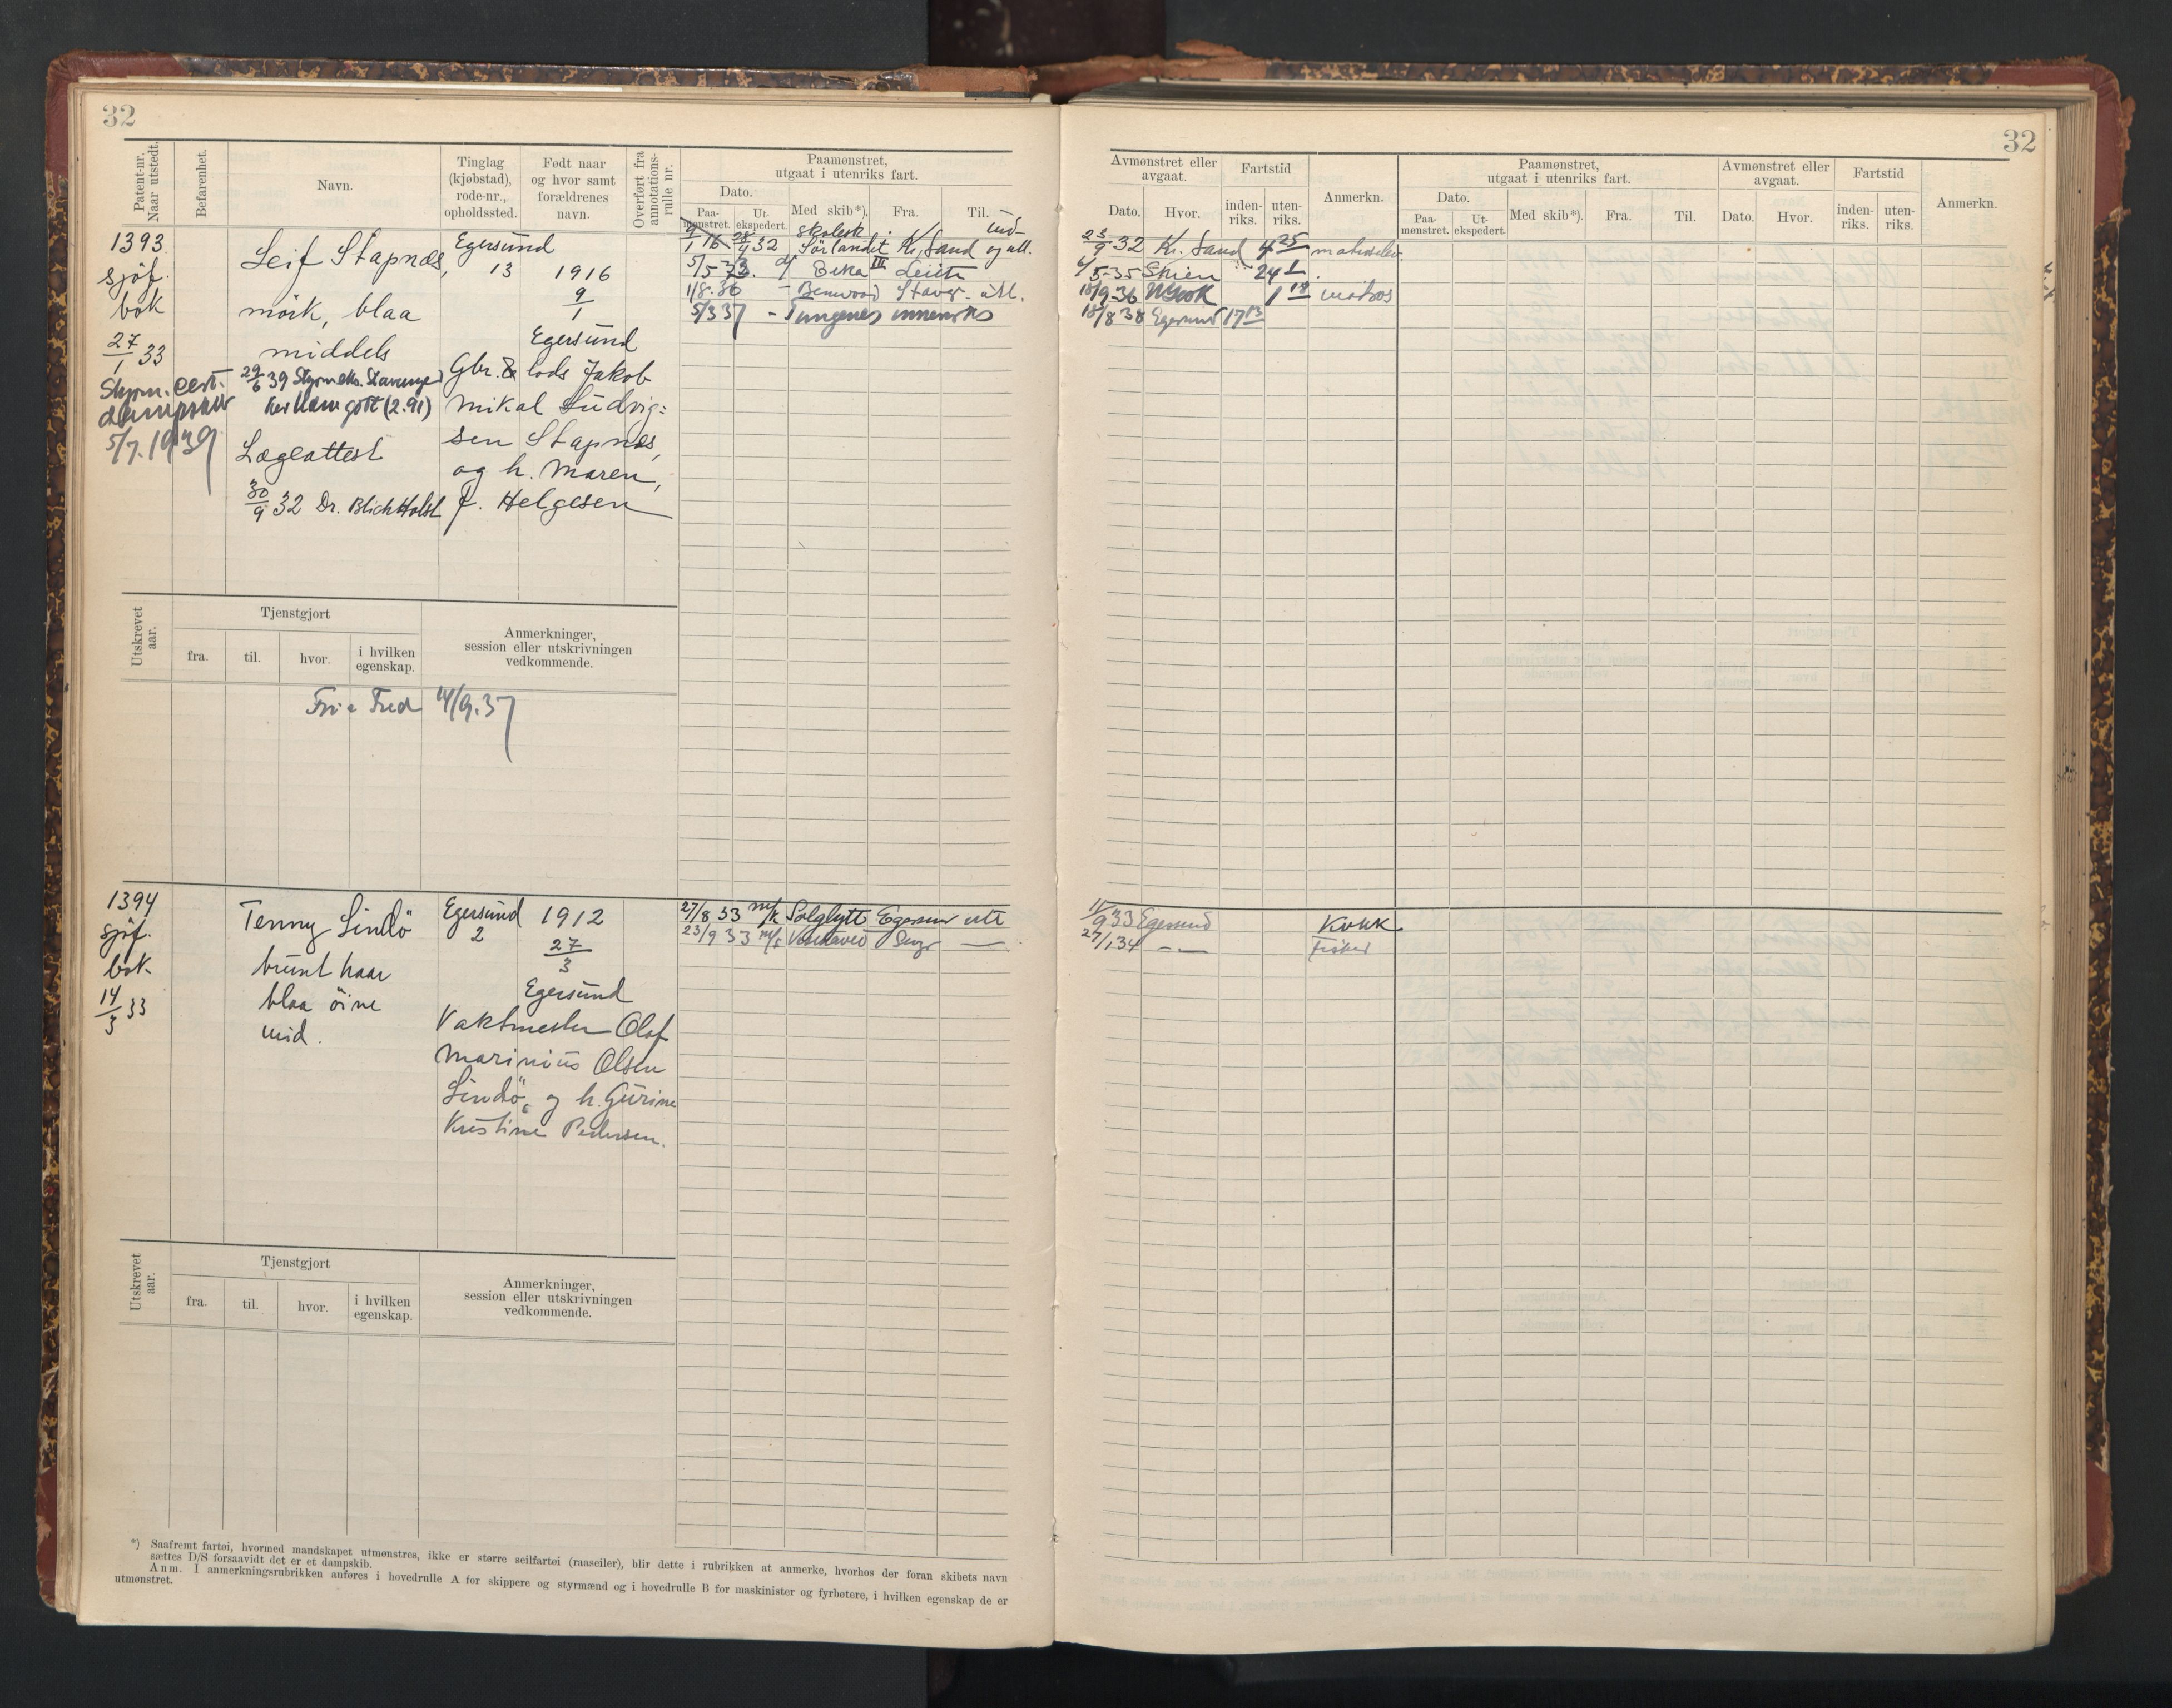 32
32
Patent-nr. Naar utstedt.
Befarenhet.
Navn.
Tinglag (kjøbstad), rode-nr., opholdssted.
Født naar og hvor samt forældrenes navn.
Overført fra annotations-rulle nr.
Paamønstret, utgaat i utenriks fart.
Dato.
Paa-mønstret.
Ut-ekspedert.
Med skib*).
Fra.
Til.
Avmønstret eller avgaat.
Dato.
Hvor.
Fartstid
inden-riks.
uten-riks.
Anmerkn.
Paamønstret, utgaat i utenriks fart.
Dato.
Paa-mønstret.
Ut-ekspedert.
Med skib*).
Fra.
Til.
Avmønstret eller avgaat.
Dato.
Hvor.
Fartstid
inden-riks.
uten-riks.
Anmerkn.
1393
sjöf.
bok
27/1 33
Styrm. cert.
dampskib
5/7.1939
Leif Stapnæs,
mörk, blaa
middels
29/6 39 Styrm eks. Stavanger
Hovedkar. godt (2.91)
Lægeattest
30/9 32 Dr. Blich Holst
Egersund
13 1916
9/1
Egersund
Gbr. & lods Jakob
Mikal Ludvig=
sen Stapnæs,
og h. Maren,
f. Helgesen
9/1 16 28/4 32 Skolesk. Sörlandet Kr. Sand ind- og utl.
5/5 33. d/ Beka III Leith
1/8.36 - Benwood Stavgr. utl.
5/3 37 - Tungenes innenriks
23/9 32 Kr. Sand 4 25 matroselev
6/5-35 Skien 24 1
18/9-36 N York 1 18 matros
18/8 38 Egersund 17 13
Utskrevet aar.
Tjenstgjort
fra.
til.
hvor.
i hvilken egenskap.
Anmerkninger, session eller utskrivningen vedkommende.
Fri i Fred 14/9.37
1394
sjöf.
bok
14/3 33
Tenny Lindö
brunt haar
blaa öine
mid.
Egersund 1912
2 27/3
Egersund
Vaktmester Olaf
Marinius Olsen
Lindö, og h. Gurine
Kristine Pedersen.
27/8 33 m/k Solglytt Egersund utl
23/9 33 m/s
11/9 33 Egersund Kokk
27/1 34 - - Fisker
Utskrevet aar.
Tjenstgjort
fra.
til.
hvor.
i hvilken egenskap.
Anmerkninger, session eller utskrivningen vedkommende.
*) Saafremt fartøi, hvormed mandskapet utmønstres, ikke er større seilfartøi (raaseiler), blir dette i rubrikken at anmerke, hvorhos der foran skibets navn
sættes D/S forsaavidt det er et dampskib.
Anm. I anmerkningsrubrikken anføres i hovedrulle A for skippere og styrmænd og i hovedrulle B for maskinister og fyrbøtere, i hvilken egenskap de er
utmønstret.